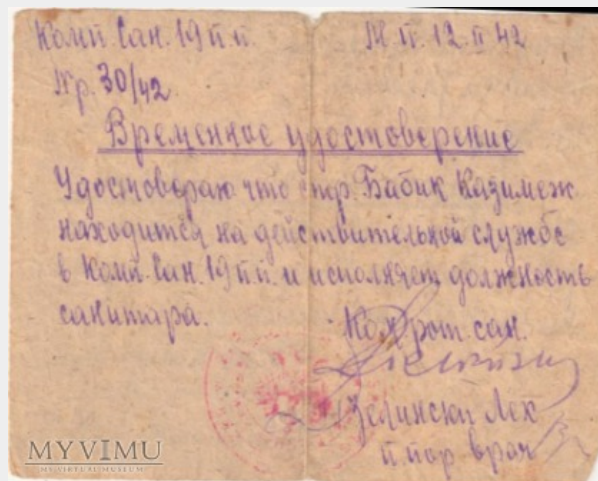 Комп. Сан. 19 п.п. М.п. 12.II 42
Нр. 30/42
Временное удостоверение
Удостоверяю что стр. Бабик Казимеж
находится на действительной службе
в Комп. Сан. 19 п.п. и исполняет должность
санитара.
Ком. рот. сан.
Зелински Лек
п.пор врач
MYVIMU
MY VIRTUAL MUSEUM